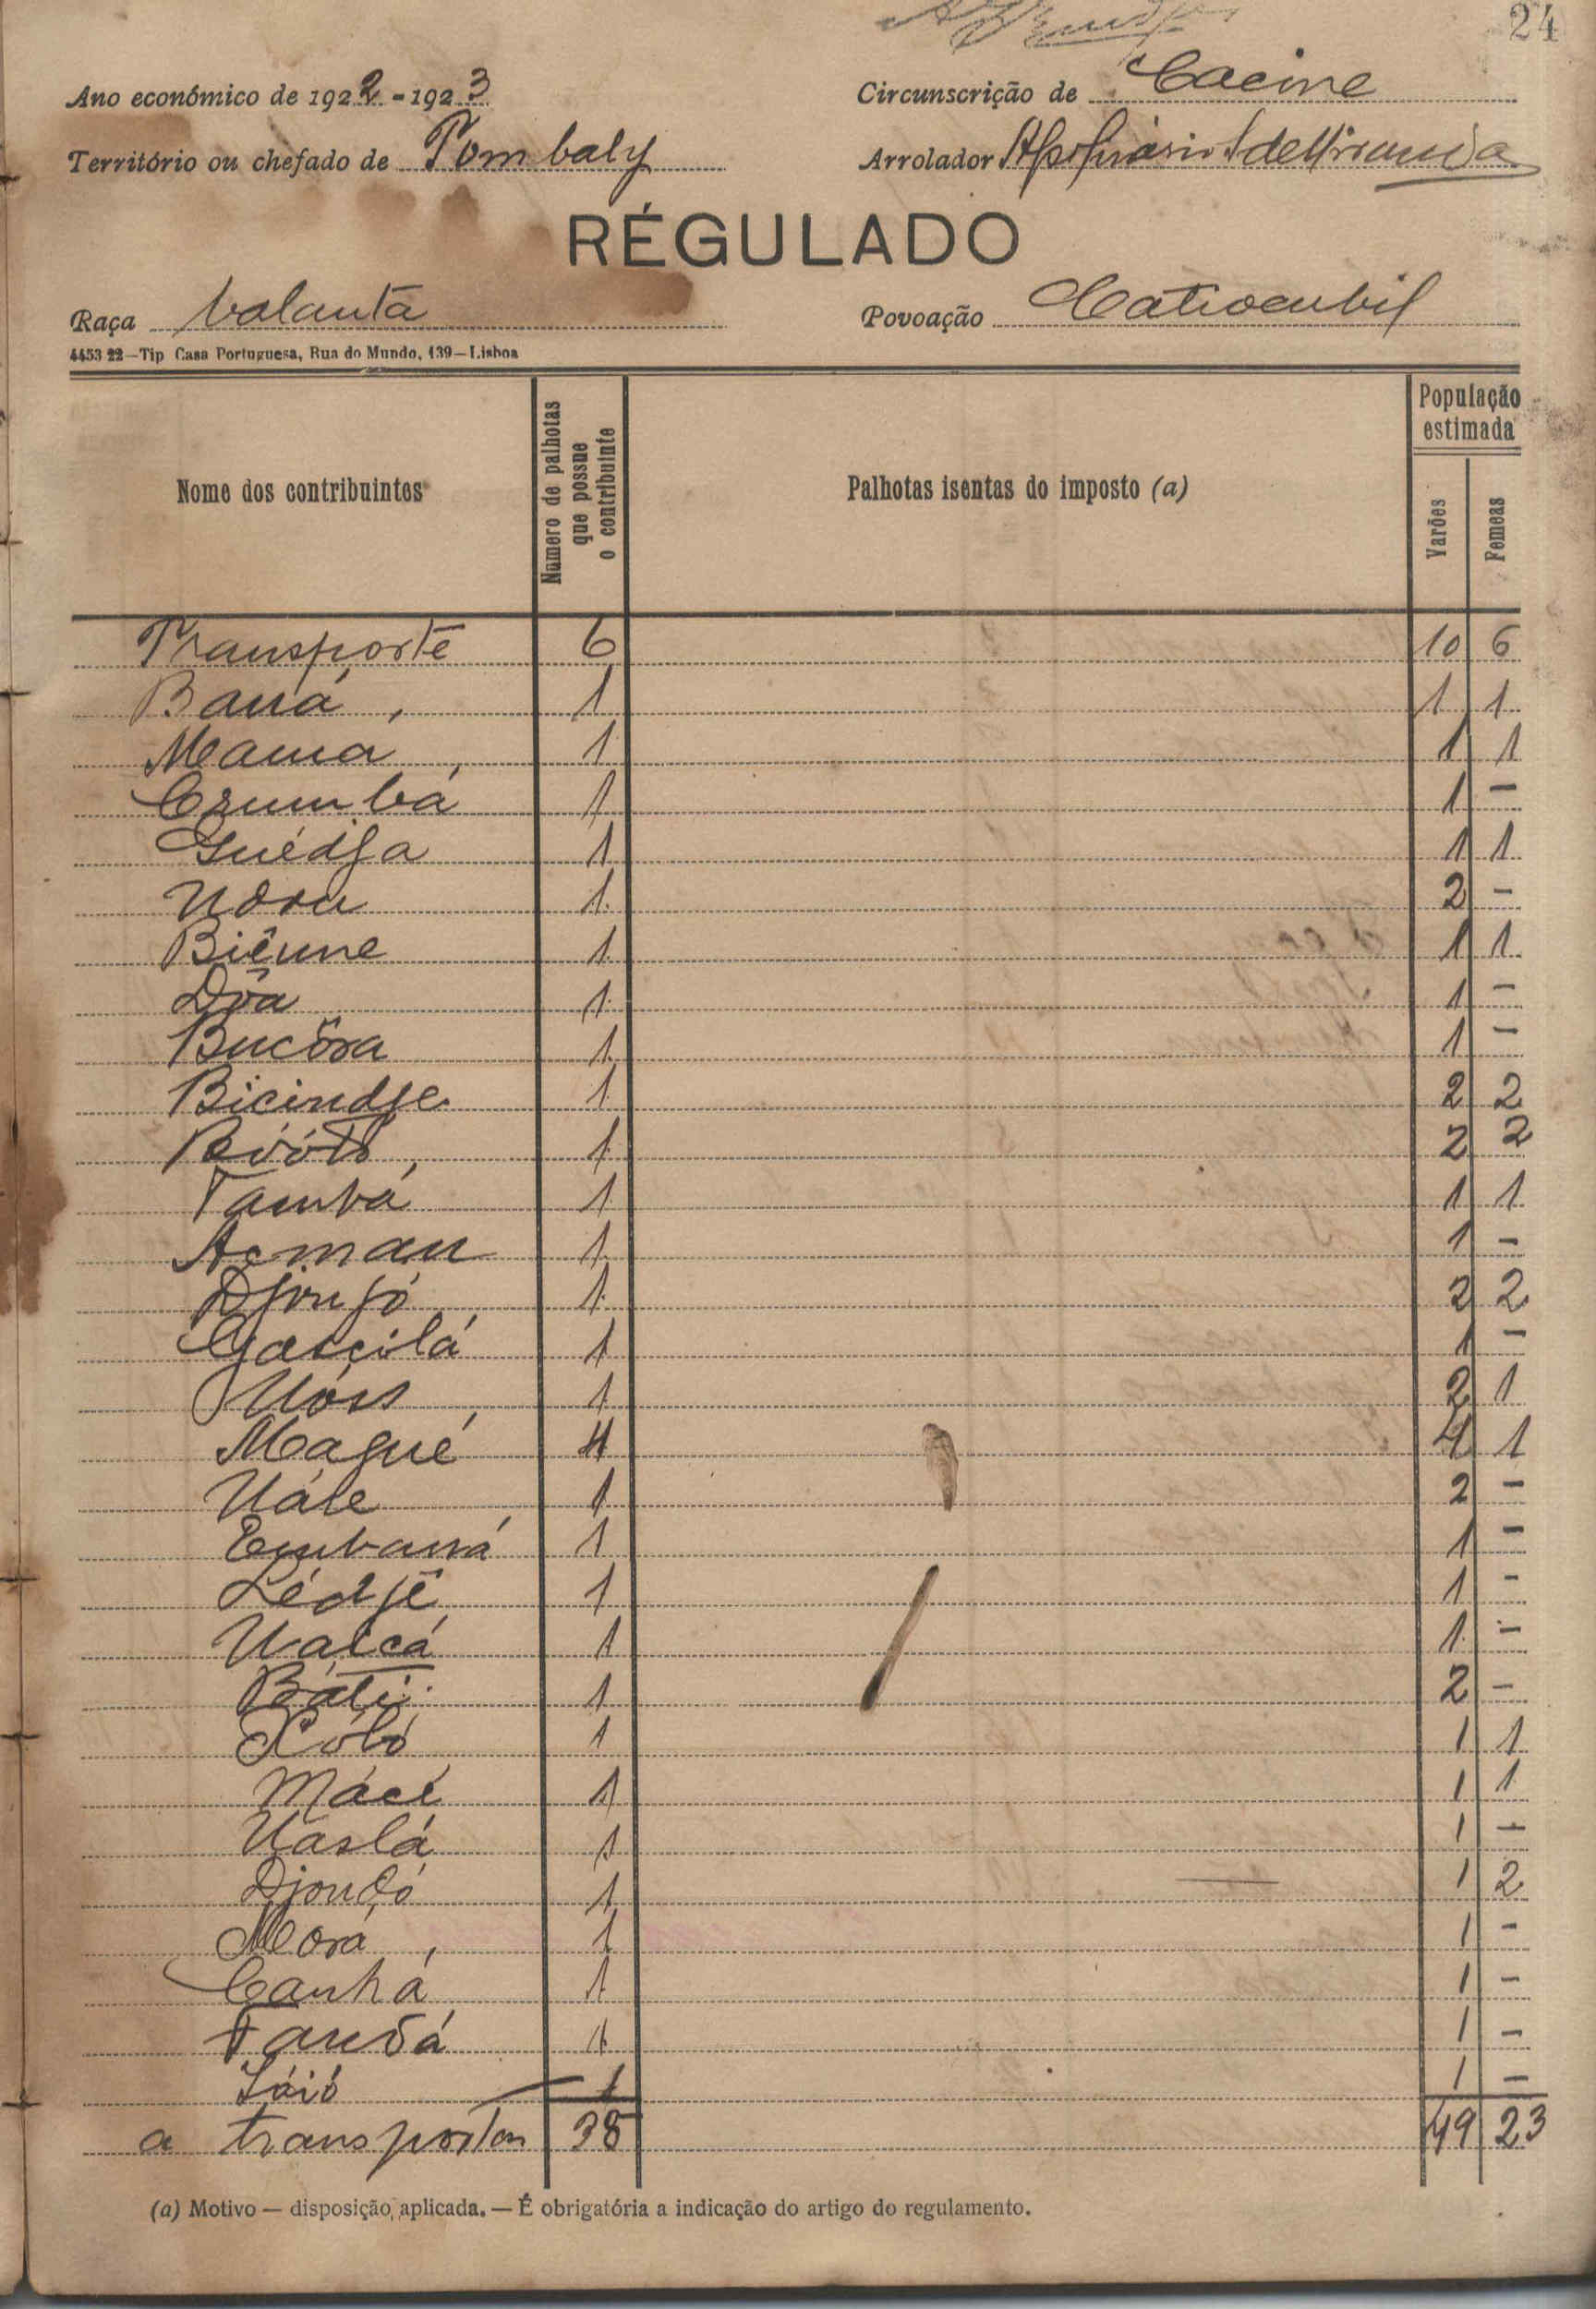 24
Ano económico de 1922-1923
Circunscrição de Cacine
Território ou chefado de Tombaly
Arrolador
RÉGULADO
Raça balanta
Povoação
4453 22—Tip Casa Portuguesa, Rua do Mundo, 139—Lisboa
Nome dos contribuintes
Numero de palhotas que possue o contribuinte
Palhotas isentas do imposto (a)
População estimada
Varões
Femeas
Transporte 6 10 6
Baná 1 1 1
Mama 1 1 1
1 1 —
Guédja 1 1 1
1 2 —
Biêune 1 1 1
Dôa 1 1 —
Bucôra 1 1 —
Bicindje 1 2 2
1 2 2
Tambá 1 1 1
Acman 1 1 —
1 2 2
1 1 —
1 2 1
Magué 4 4 1
Uále 1 2 —
1 1 —
Lédjê 1 1 —
Ualcá 1 1 —
Báti 1 2 —
1 1 1
Mácé 1 1 1
Uaslá 1 1 —
1 1 2
Morá 1 1 —
Canhá 1 1 —
1 1 —
1 1 —
a transportar 38 49 23
(a) Motivo — disposição, aplicada. — É obrigatória a indicação do artigo do regulamento.